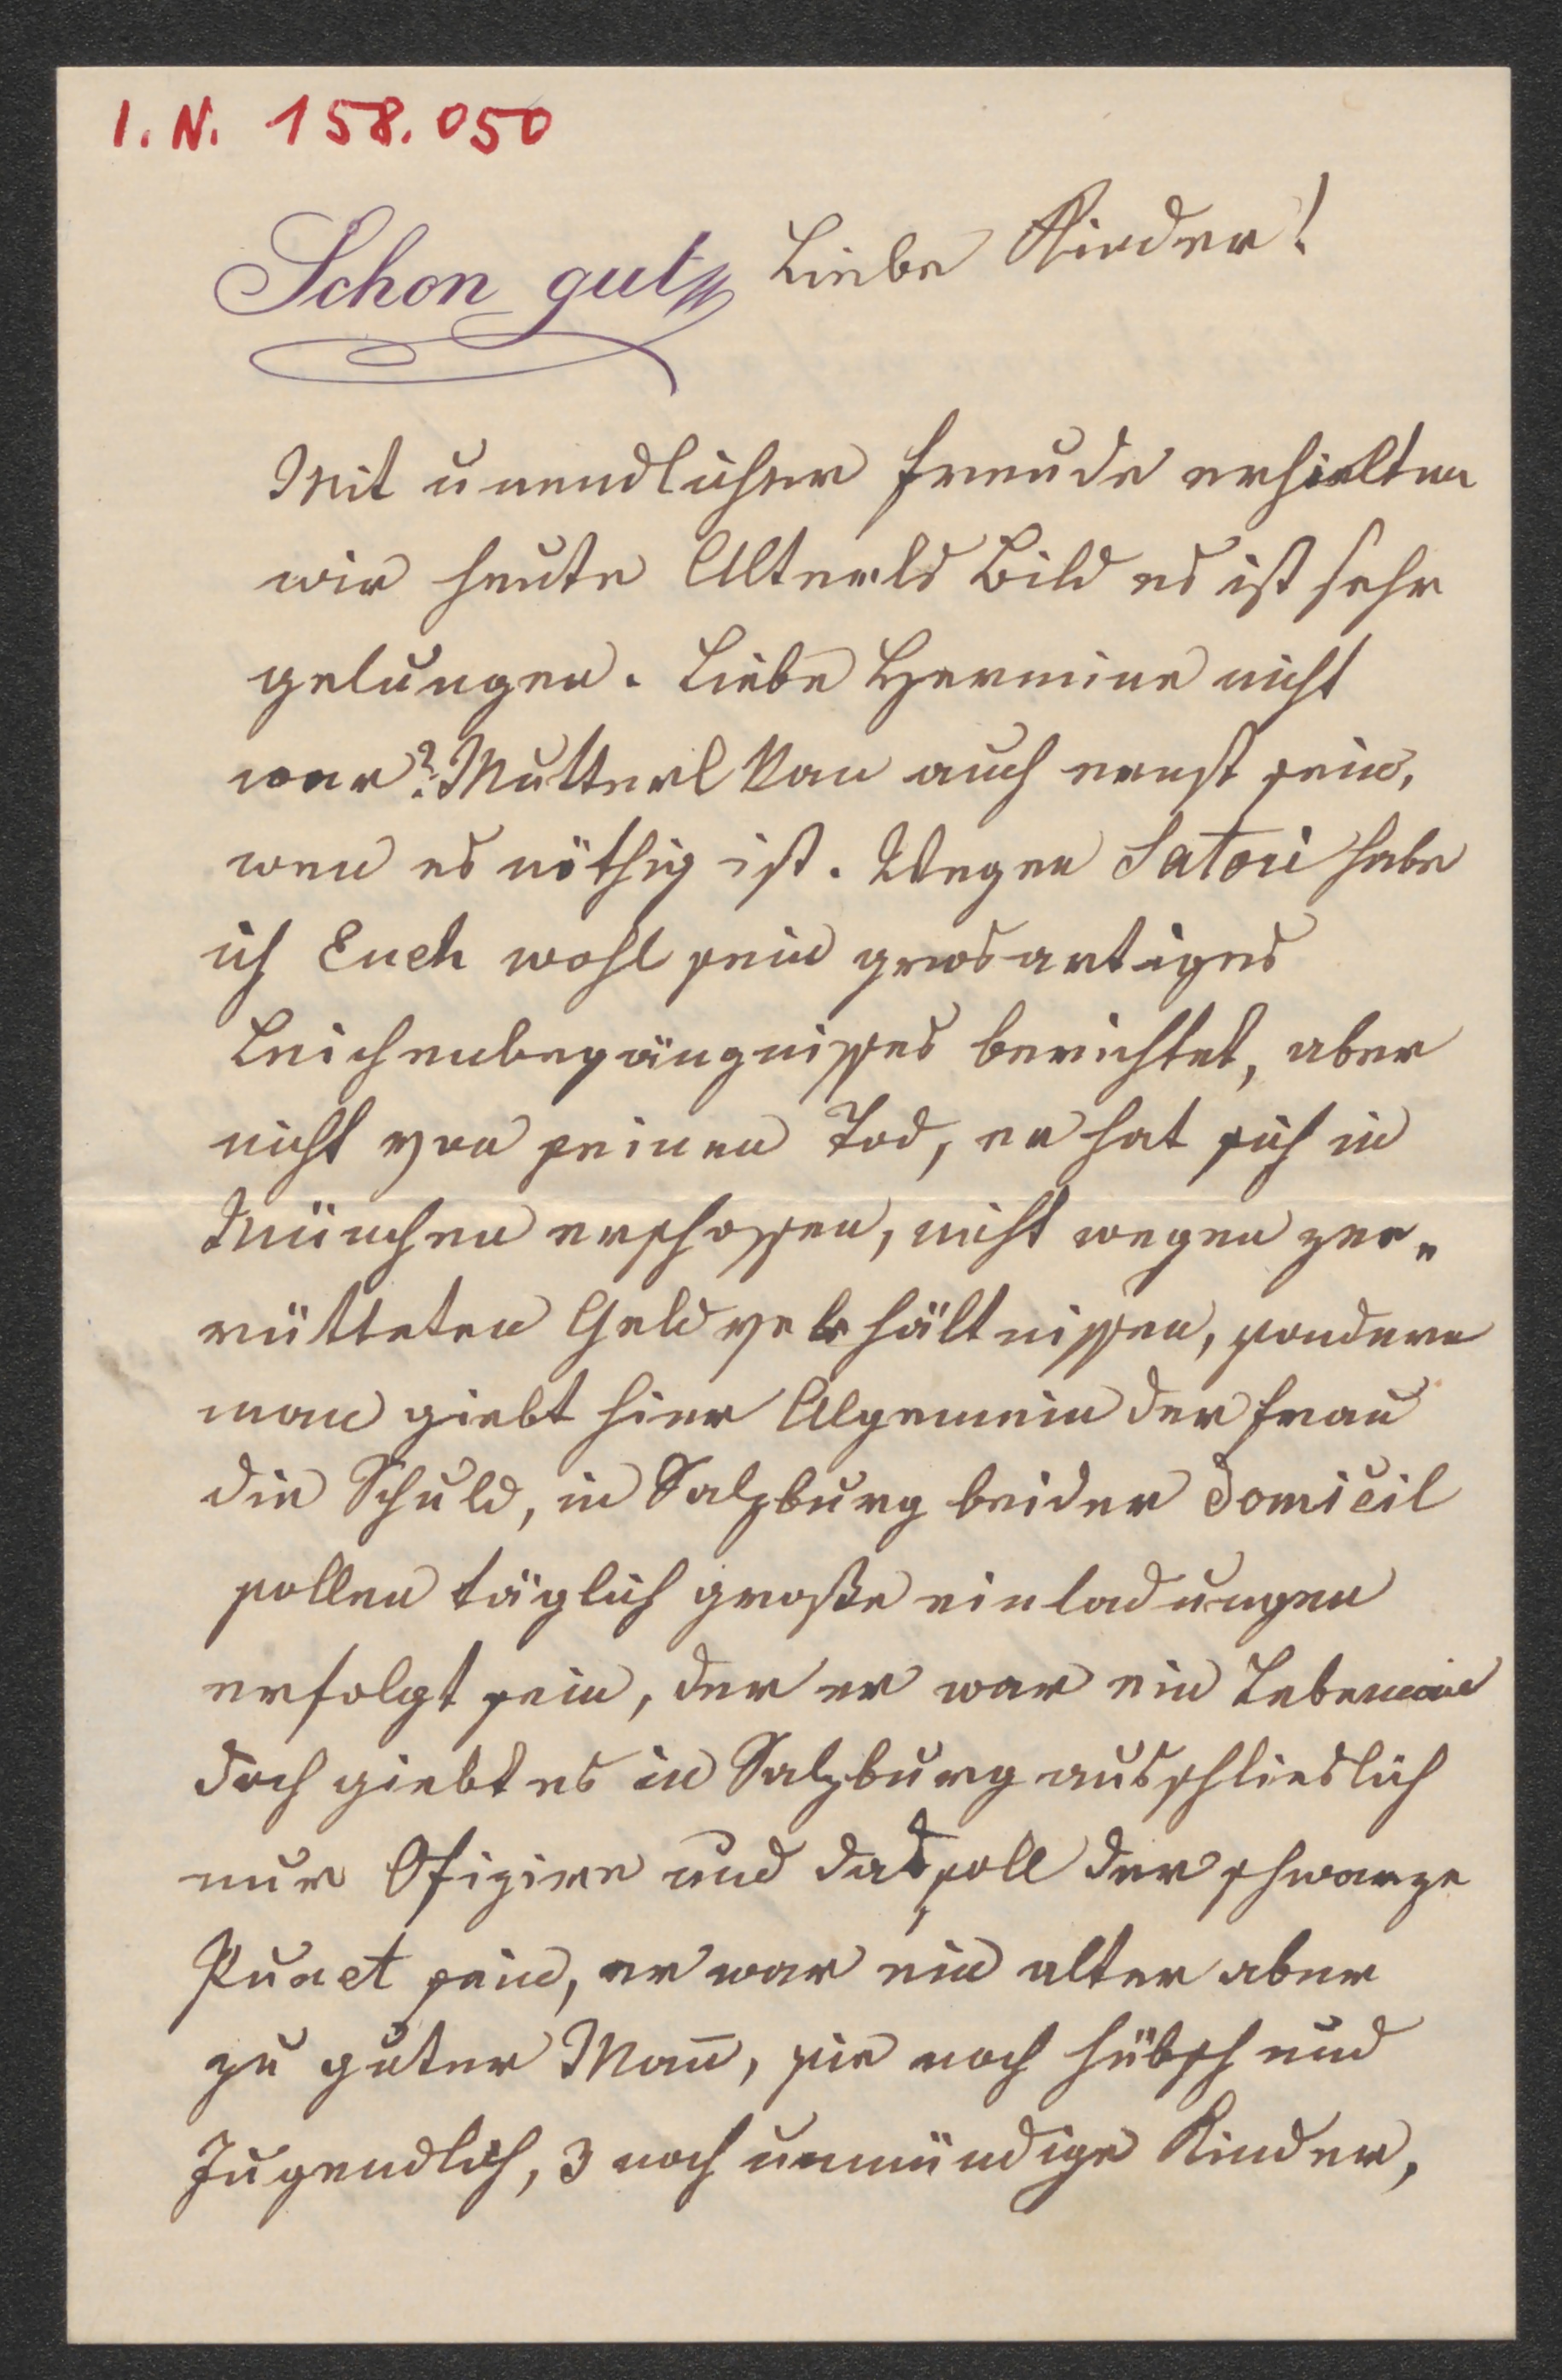 I. N. 158.050
Schon gut
Liebe Kinder!
Mit unendlicher Freude erhielten
wir heute Alterls Bild es ist sehr
gelungen. Liebe Hermine nicht
war? Mutterl kan auch ernst sein,
wen es nöthig ist. Wegen Satori habe
ich Euch wohl sein grosartiges
Leichenbegängnisses berichtet, aber
nicht von seinen Tod, er hat sich in
München erschossen, nicht wegen zer„
rütteten Geldverhältnissen, sondern
man giebt hier Algemein der Frau
die Schuld, in Salzburg beider Domicil
sollen täglich große einladungen
erfolgt sein, der er war ein Lebemann
doch giebt es in Salzburg ausschlieslich
nur Ofizire und das soll der schwarze
Punct sein, er war ein alter aber
zu guter Man̄, sie noch hübsch und
Jugendlich, 3 noch unmündige Kinder,